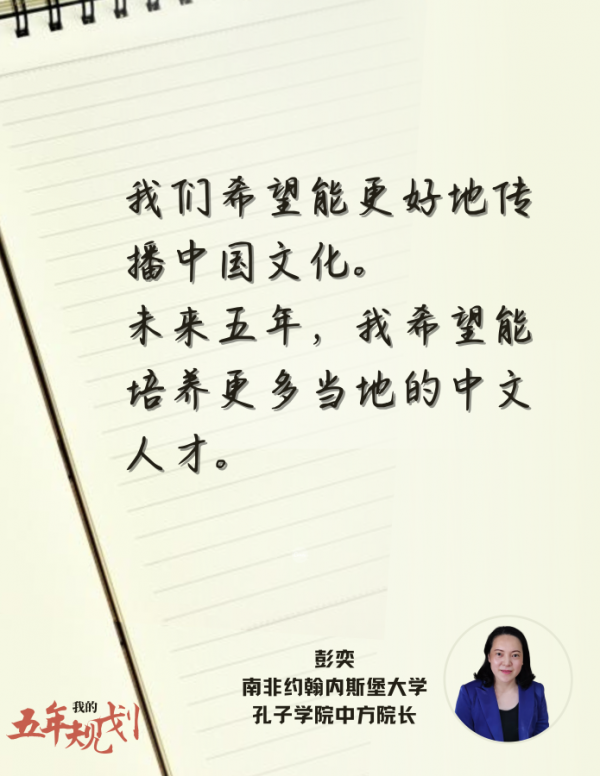 我们希望能更好地传
播中国文化。
未来五年，我希望能
培养更多当地的中文
人才。
彭奕
南非约翰内斯堡大学
孔子学院中方院长
我的
五年规划